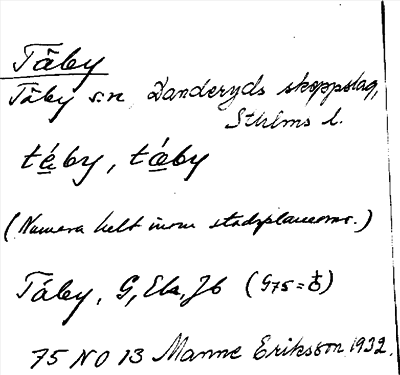 Täby
Täby s:n Danderyds skeppslag,
Sthlms l.
té̱by, tá̱by
(Numera helt inom stadsplaneomr.)
Täby, G, Ek, Jb (G75 = ð)
75 NO 13 Manne Eriksson 1932.